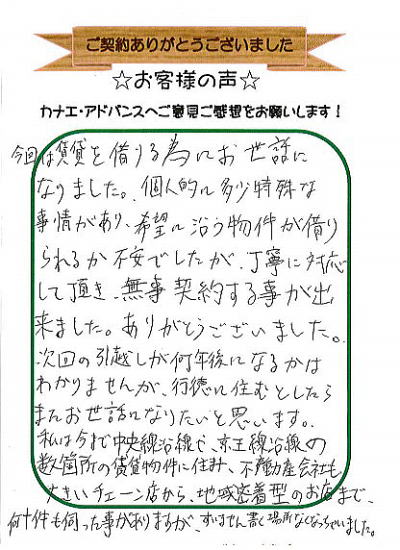 ご契約ありがとうございました
☆お客様の声☆
カナエ・アドバンスへご意見ご感想をお願いします!
今回は賃貸を借りる為にお世話に
なりました。個人的に多少特殊な
事情があり、希望に沿う物件が借り
られるか不安でしたが、丁寧に対応
して頂き、無事契約する事が出
来ました。ありがとうございました。
次回の引越しが何年後になるかは
わかりませんが、行徳に住むとしたら
またお世話になりたいと思います。
私は今まで中央線沿線や、京王線沿線の
数箇所の賃貸物件に住み、不動産会社も
大きいチェーン店から、地域密着型のお店まで、
何十件も伺った事がありますが、すいません、書く場所なくなっちゃいました。